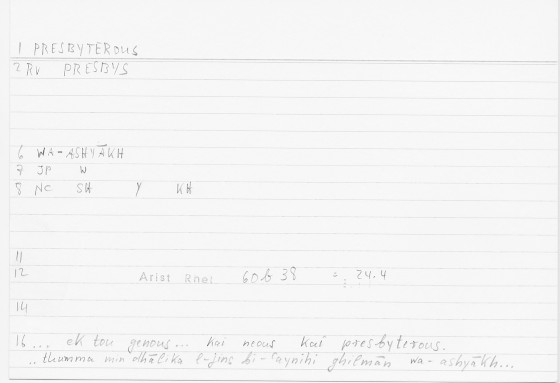 1 PRESBYTEROUS
2 RV PRESBYS
6 WA-ASHYĀKH
7 JP W
8 NC SH Y KH
11
12 Arist Rhet 60b38 = 24.4
14
16 ... ek tou genous... kai neous kai presbyterous.
.. thumma min dhālika l-jins bi-ʿaynihi ghilmān wa-ashyākh...